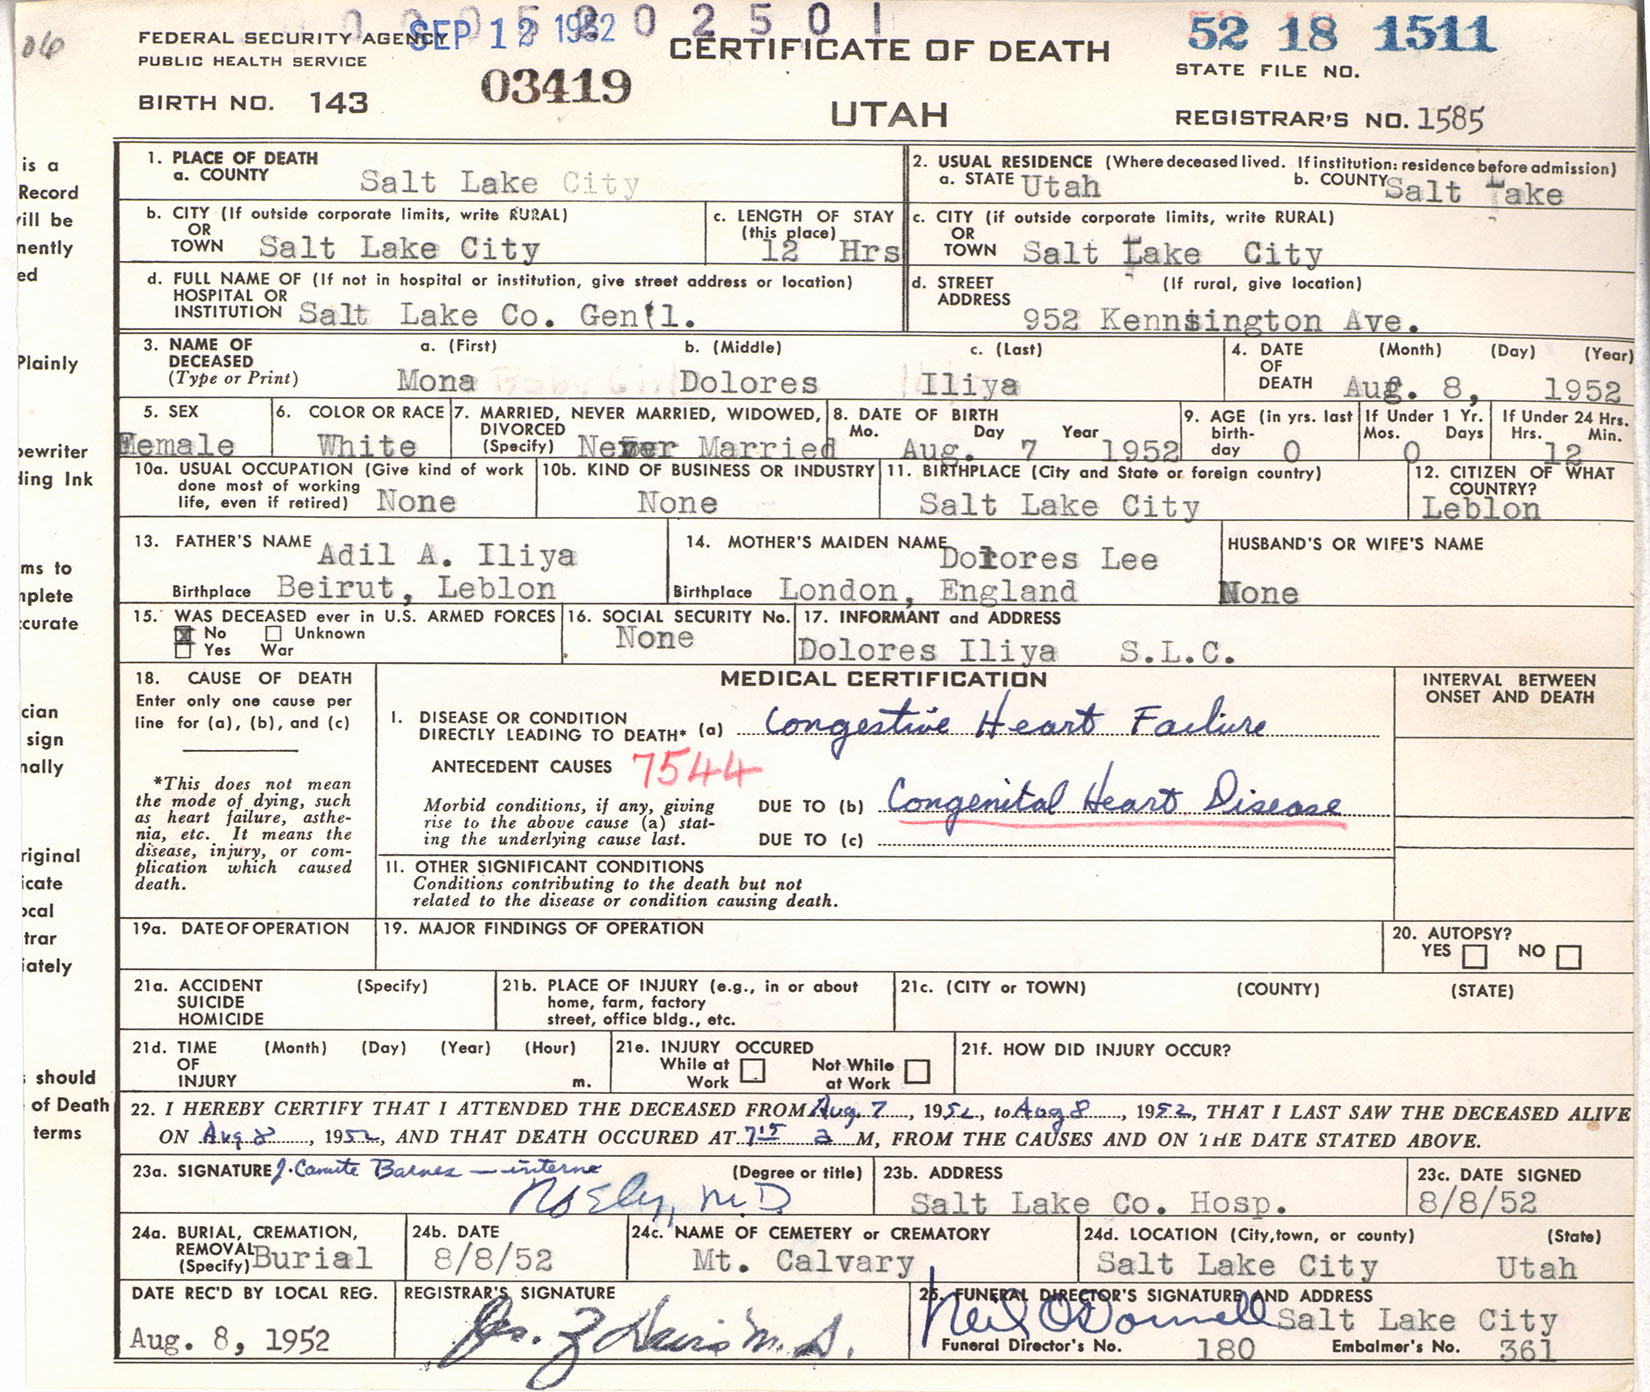 0 0 0 0 5 8 0 2 5 0 1
06
FEDERAL SECURITY AGENCY
PUBLIC HEALTH SERVICE
SEP 12 1952
CERTIFICATE OF DEATH
52 18 1511
STATE FILE NO.
BIRTH NO. 143
03419
UTAH
REGISTRAR'S NO. 1585
is a
Record
ill be
nently
ed
Plainly
pewriter
ding Ink
ms to
mplete
curate
cian
sign
nally
riginal
icate
ocal
trar
iately
should
of Death
terms
1. PLACE OF DEATH
a. COUNTY Salt Lake City
2. USUAL RESIDENCE (Where deceased lived. If institution: residence before admission)
a. STATE Utah b. COUNTY Salt Lake
b. CITY (If outside corporate limits, write RURAL)
OR
TOWN Salt Lake City
c. LENGTH OF STAY
(this place)
12 Hrs
c. CITY (if outside corporate limits, write RURAL)
OR
TOWN Salt Lake City
d. FULL NAME OF (If not in hospital or institution, give street address or location)
HOSPITAL OR
INSTITUTION Salt Lake Co. Gen'l.
d. STREET (If rural, give location)
ADDRESS
952 Kennsington Ave.
3. NAME OF a. (First) b. (Middle) c. (Last)
DECEASED
(Type or Print) Mona Dolores Iliya
4. DATE (Month) (Day) (Year)
OF
DEATH Aug. 8, 1952
5. SEX
Female
6. COLOR OR RACE
White
7. MARRIED, NEVER MARRIED, WIDOWED,
DIVORCED
(Specify) Never Married
8. DATE OF BIRTH
Mo. Day Year
Aug. 7 1952
9. AGE (in yrs. last
birth-
day 0
If Under 1 Yr.
Mos. Days
0
If Under 24 Hrs.
Hrs. Min.
12
10a. USUAL OCCUPATION (Give kind of work
done most of working
life, even if retired) None
10b. KIND OF BUSINESS OR INDUSTRY
None
11. BIRTHPLACE (City and State or foreign country)
Salt Lake City
12. CITIZEN OF WHAT
COUNTRY?
Leblon
13. FATHER'S NAME Adil A. Iliya
Birthplace Beirut, Leblon
14. MOTHER'S MAIDEN NAME Dolores Lee
Birthplace London, England
HUSBAND'S OR WIFE'S NAME
None
15. WAS DECEASED ever in U.S. ARMED FORCES
No Unknown
Yes War
16. SOCIAL SECURITY No.
None
17. INFORMANT and ADDRESS
Dolores Iliya S.L.C.
18. CAUSE OF DEATH
Enter only one cause per
line for (a), (b), and (c)
*This does not mean
the mode of dying, such
as heart failure, asthe-
nia, etc. It means the
disease, injury, or com-
plication which caused
death.
MEDICAL CERTIFICATION
INTERVAL BETWEEN
ONSET AND DEATH
I. DISEASE OR CONDITION
DIRECTLY LEADING TO DEATH* (a) Congestive Heart Failure
ANTECEDENT CAUSES 7544
Morbid conditions, if any, giving
rise to the above cause (a) stat-
ing the underlying cause last.
DUE TO (b) Congenital Heart Disease
DUE TO (c)
II. OTHER SIGNIFICANT CONDITIONS
Conditions contributing to the death but not
related to the disease or condition causing death.
19a. DATE OF OPERATION
19. MAJOR FINDINGS OF OPERATION
20. AUTOPSY?
YES NO
21a. ACCIDENT (Specify)
SUICIDE
HOMICIDE
21b. PLACE OF INJURY (e.g., in or about
home, farm, factory
street, office bldg., etc.
21c. (CITY or TOWN) (COUNTY) (STATE)
21d. TIME (Month) (Day) (Year) (Hour)
OF
INJURY m.
21e. INJURY OCCURED
While at Not While
Work at Work
21f. HOW DID INJURY OCCUR?
22. I HEREBY CERTIFY THAT I ATTENDED THE DECEASED FROM Aug. 7, 1952, to Aug 8, 1952, THAT I LAST SAW THE DECEASED ALIVE
ON Aug 8, 1952, AND THAT DEATH OCCURED AT 7 15 a M, FROM THE CAUSES AND ON THE DATE STATED ABOVE.
23a. SIGNATURE J. Barnes — interne (Degree or title)
M.D.
23b. ADDRESS
Salt Lake Co. Hosp.
23c. DATE SIGNED
8/8/52
24a. BURIAL, CREMATION,
REMOVAL
(Specify) Burial
24b. DATE
8/8/52
24c. NAME OF CEMETERY or CREMATORY
Mt. Calvary
24d. LOCATION (City, town, or county) (State)
Salt Lake City Utah
DATE REC'D BY LOCAL REG.
Aug. 8, 1952
REGISTRAR'S SIGNATURE
M.D.
25. FUNERAL DIRECTOR'S SIGNATURE AND ADDRESS
Neil O'Donnell Salt Lake City
Funeral Director's No. 180 Embalmer's No. 361